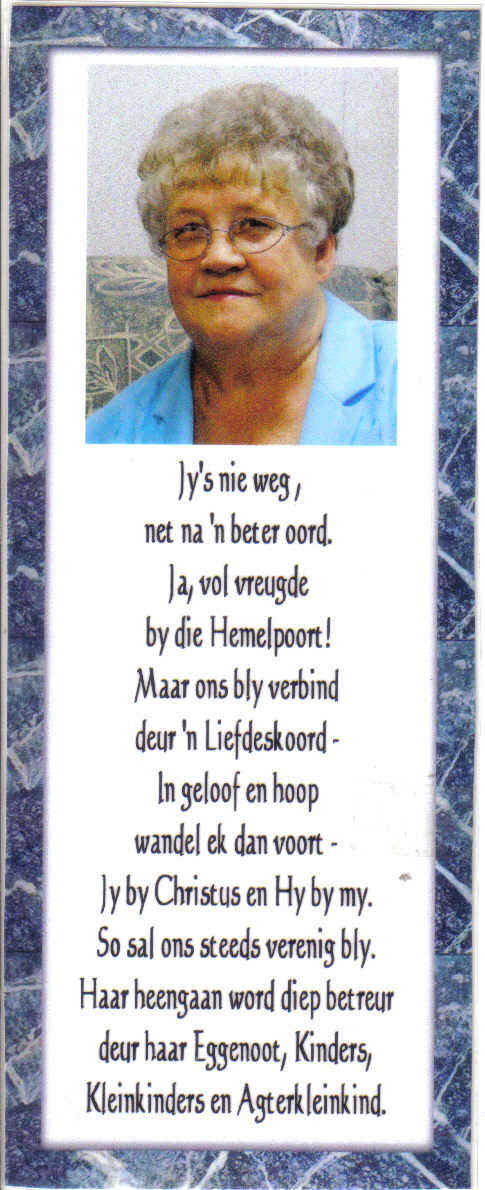 Jy's nie weg,
net na 'n beter oord.
Ja, vol vreugde
by die Hemelpoort!
Maar ons bly verbind
deur 'n Liefdeskoord -
In geloof en hoop
wandel ek dan voort -
Jy by Christus en Hy by my.
So sal ons steeds verenig bly.
Haar heengaan word diep betreur
deur haar Eggenoot, Kinders,
Kleinkinders en Agterkleinkind.